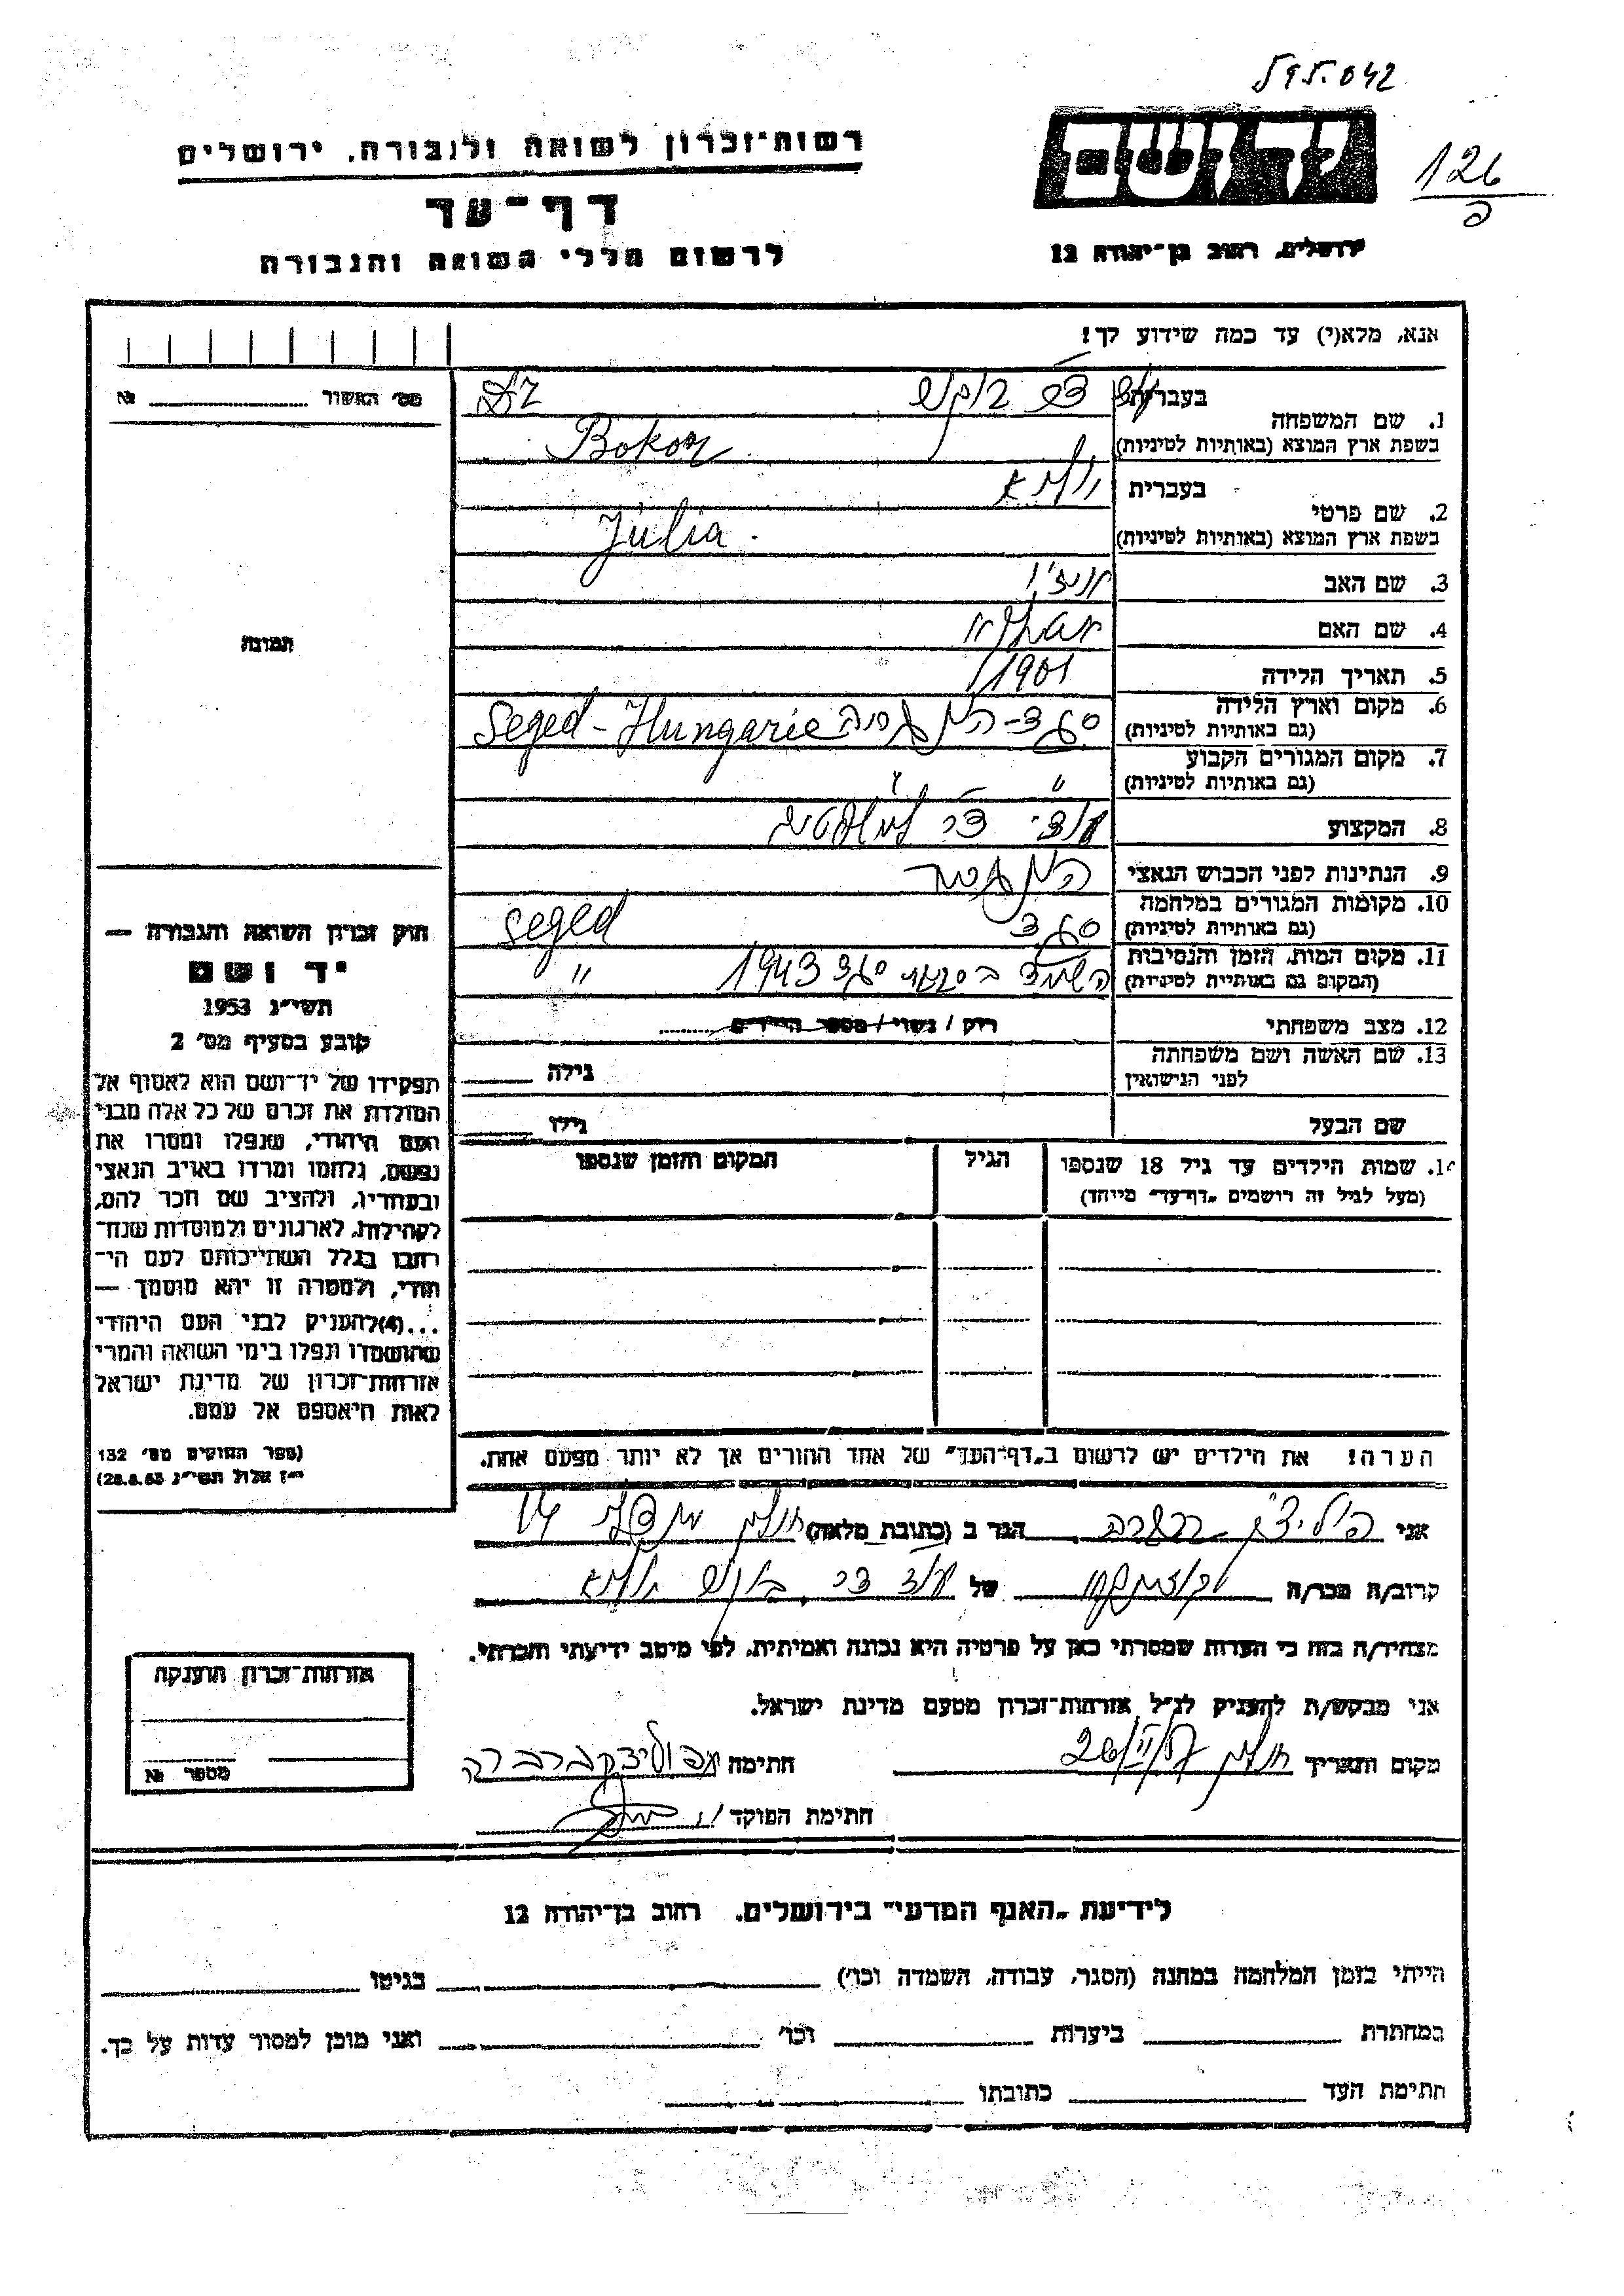 126
יד ושם
רשות־זכרון לשואה ולגבורה, ירושלים
דף־עד
ירושלים, רחוב בן־יהודה 12
לרשום חללי השואה והגבורה
אנא, מלא(י) עד כמה שידוע לך!
מס' האשור №
1. שם המשפחה
בעברית
בשפת ארץ המוצא (באותיות לטיניות) Bokor
2. שם פרטי
בעברית
בשפת ארץ המוצא (באותיות לטיניות) Júlia
3. שם האב
4. שם האם
5. תאריך הלידה 1901
6. מקום וארץ הלידה
(גם באותיות לטיניות) סגד - הונגריה Seged - Hungarie
7. מקום המגורים הקבוע
(גם באותיות לטיניות) "
8. המקצוע
9. הנתינות לפני הכבוש הנאצי
10. מקומות המגורים במלחמה
(גם באותיות לטיניות) סגד Seged
11. מקום המות, הזמן והנסיבות
(המקום גם באותיות לטיניות) סגד 1943 "
12. מצב משפחתי רוק / נשוי / מספר הילדים
13. שם האשה ושם משפחתה
לפני הנישואין גילה
שם הבעל גילו
14. שמות הילדים עד גיל 18 שנספו הגיל המקום והזמן שנספו
(מעל לגיל זה רושמים "דף־עד" מיוחד)
הערה! את הילדים יש לרשום ב"דף־העד" של אחד ההורים אך לא יותר מפעם אחת.
תמונה
חוק זכרון השואה והגבורה —
יד ושם
תשי"ג 1953
קובע בסעיף מס' 2
תפקידו של יד־ושם הוא לאסוף אל
המולדת את זכרם של כל אלה מבני
העם היהודי, שנפלו ומסרו את
נפשם, נלחמו ומרדו באויב הנאצי
ובעוזריו, ולהציב שם וזכר להם,
לקהילות, לארגונים ולמוסדות שנח־
רבו בגלל השתייכותם לעם הי־
הודי, ולמטרה זו יהא מוסמך —
...(4)להעניק לבני העם היהודי
שהושמדו ונפלו בימי השואה והמרי
אזרחות־זכרון של מדינת ישראל
לאות היאספם אל עמם.
(ספר החוקים מס' 132
י"ז אלול תשי"ג 28.8.53)
אני ברברה הגר ב (כתובת מלאה) חולון
קרוב/ה מכר/ה של
מצהיר/ה בזה כי העדות שמסרתי כאן על פרטיה היא נכונה ואמיתית, לפי מיטב ידיעתי והכרתי.
אני מבקש/ת להעניק לנ"ל אזרחות־זכרון מטעם מדינת ישראל.
מקום ותאריך חולון חתימה ברברה
חתימת הפוקד
אזרחות־זכרון הוענקה
מספר №
לידיעת "האגף המדעי" בירושלים, רחוב בן־יהודה 12
הייתי בזמן המלחמה במחנה (הסגר, עבודה, השמדה וכו') בגיטו
במחתרת ביערות וכו' ואני מוכן למסור עדות על כך.
חתימת העד כתובתו